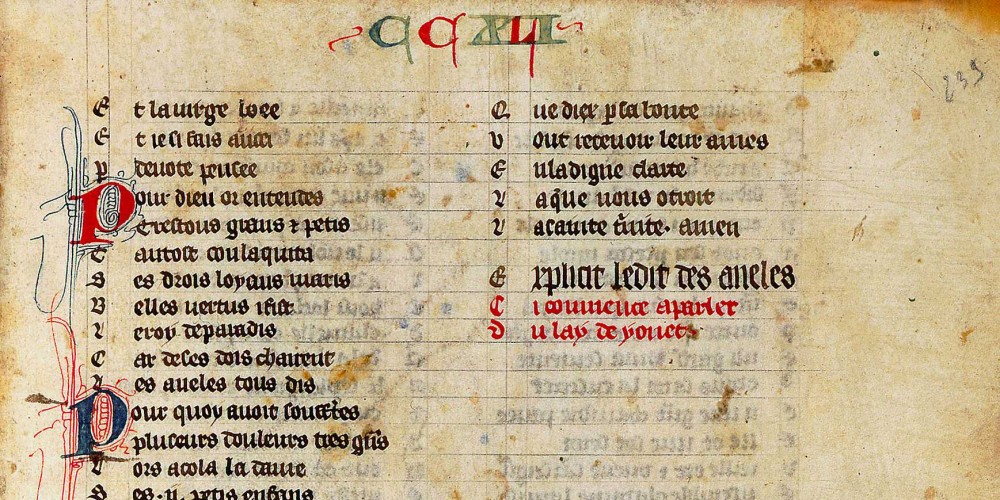 CCXLI
239
E t la uirge loee
E t ie si fais aussi
P deuote pensee
Pour dieu or entendes
Trestous grans ⁊ petis
C autost con laquita
S es drois loyaus maris
B elles uertus
L e roy de paradis
C ar de ses dois chaurent
L es aneles tous dis
Pour quoy auoit souffertes
plusieurs douleurs tres
L ors acola la dame
S es .ii. petis enfans
Q ue dieu par sa bonte
V out receuoir leur ames
E n la digne clarte
L a que nous otroit
L a sainte trinite. amen
E xplicit le dit des aneles
C i commence a parler
D u lay de yonet